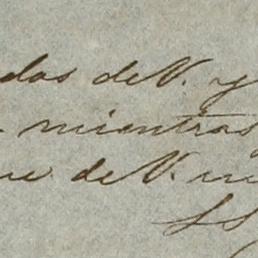 dos de V. y
mientras
de V.
SS